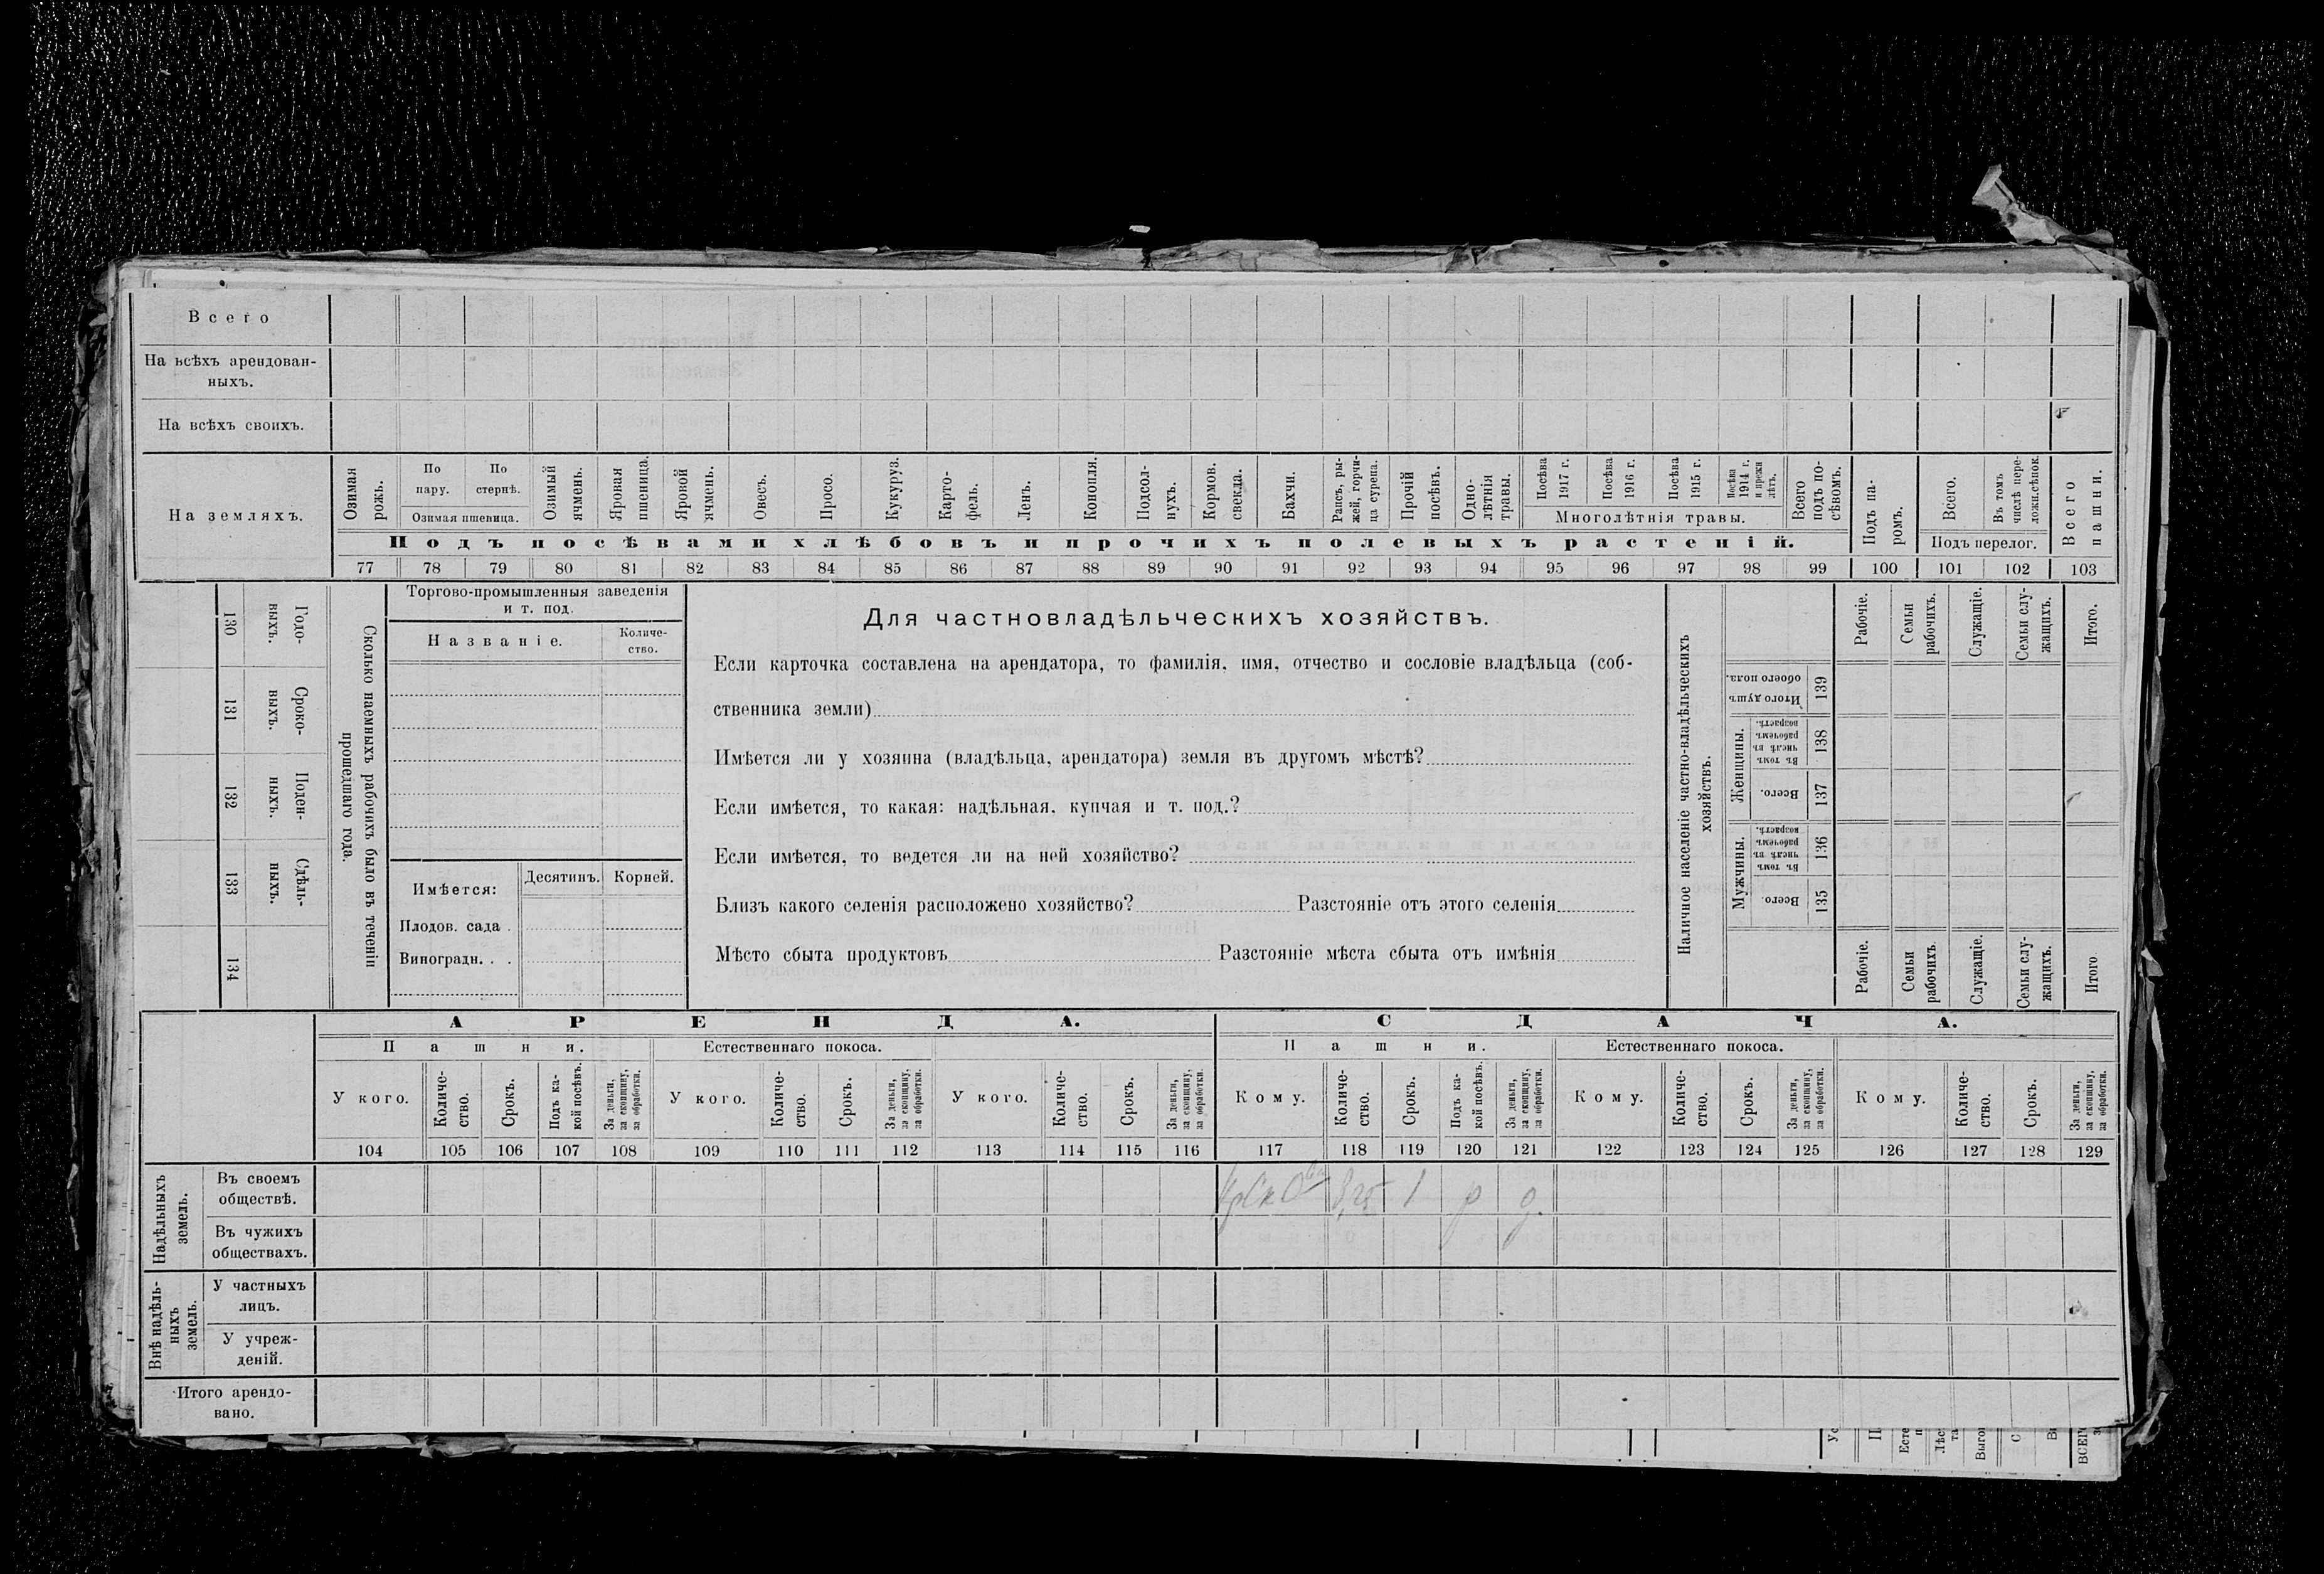 Всего
На всѣхъ арендован-
ныхъ.
На всѣхъ своихъ.
На земляхъ.
Озимая рожь.
По пару.
По стернѣ.
Озимая пшеница.
Озимый ячмень.
Яровая пшеница.
Яровой ячмень.
Овесъ.
Просо.
Кукуруз.
Карто-
фель.
Ленъ.
Конопля.
Подсол-
нухъ.
Кормов.
свекла.
Бахчи.
Рапсъ, ры-
жей, горчи-
ца сурепа.
Прочій
посѣвъ.
Одно-
лѣтнія
травы.
Посѣва
1917 г.
Посѣва
1916 г.
Посѣва
1915 г.
Посѣва
1914 г.
и прежн
лѣтъ.
Многолѣтнія травы.
Всего
подъ по-
сѣвомъ.
Подъ па-
ромъ.
Всего.
Въ томъ
числѣ пере-
ложн.сѣнок.
Подъ перелог.
Всего
пашни.
Подъ посѣвами хлѣбовъ и прочихъ полевыхъ растеній.
77 78 79 80 81 82 83 84 85 86 87 88 89 90 91 92 93 94 95 96 97 98 99 100 101 102 103
130
Годо-
выхъ.
131
Сроко-
выхъ.
132
Поден-
ныхъ.
133
Сдѣль-
ныхъ.
134
Сколько наемныхъ рабочихъ было въ теченіи
прошедшаго года.
Торгово-промышленныя заведенія
и т. под.
Названіе.
Количе-
ство.
Имѣется:
Десятинъ.
Корней.
Плодов. сада .
Виноградн. . .
Для частновладѣльческихъ хозяйствъ.
Если карточка составлена на арендатора, то фамилія, имя, отчество и сословіе владѣльца (соб-
ственника земли)
Имѣется ли у хозяина (владѣльца, арендатора) земля въ другомъ мѣстѣ?
Если имѣется, то какая: надѣльная, купчая и т. под.?
Если имѣется, то ведется ли на ней хозяйство?
Близъ какого селенія расположено хозяйство? Разстояніе отъ этого селенія
Мѣсто сбыта продуктовъ Разстояніе мѣста сбыта отъ имѣнія
Наличное населеніе частно-владѣльческихъ
хозяйствъ.
Рабочіе.
Семьи
рабочихъ.
Служащіе.
Семьи слу-
жащихъ.
Итого.
Итого душъ
обоего пола.
139
Женщины.
Въ томъ
числѣ въ
рабочемъ
возрастѣ.
138
Всего.
137
Мужчины.
Въ томъ
числѣ въ
рабочемъ
возрастѣ.
136
Всего.
135
Рабочіе.
Семьи
рабочихъ
Служащіе.
Семьи слу-
жащихъ.
Итого
АРЕНДА.
СДАЧА.
Пашни.
Естественнаго покоса.
Пашни.
Естественнаго покоса.
У кого.
Количе-
ство.
Срокъ.
Подъ ка-
кой посѣвъ.
За деньги,
за скопщину,
за обработки.
У кого.
Количе-
ство.
Срокъ.
За деньги,
за скопщину,
за обработки.
У кого.
Количе-
ство.
Срокъ.
За деньги,
за скопщину,
за обработки.
Кому.
Количе-
ство.
Срокъ.
Подъ ка-
кой посѣвъ.
За деньги,
за скопщину,
за обработки.
Кому.
Количе-
ство.
Срокъ.
За деньги,
за скопщину,
за обработки.
Кому.
Количе-
ство.
Срокъ.
За деньги,
за скопщину,
за обработки.
104 105 106 107 108 109 110 111 112 113 114 115 116 117 118 119 120 121 122 123 124 125 126 127 128 129
Надѣльныхъ
земель.
Въ своемъ
обществѣ.
1 р д.
Въ чужихъ
обществахъ.
Внѣ надѣль-
ныхъ
земель.
У частныхъ
лицъ.
У учреж-
деній.
Итого арендо-
вано.